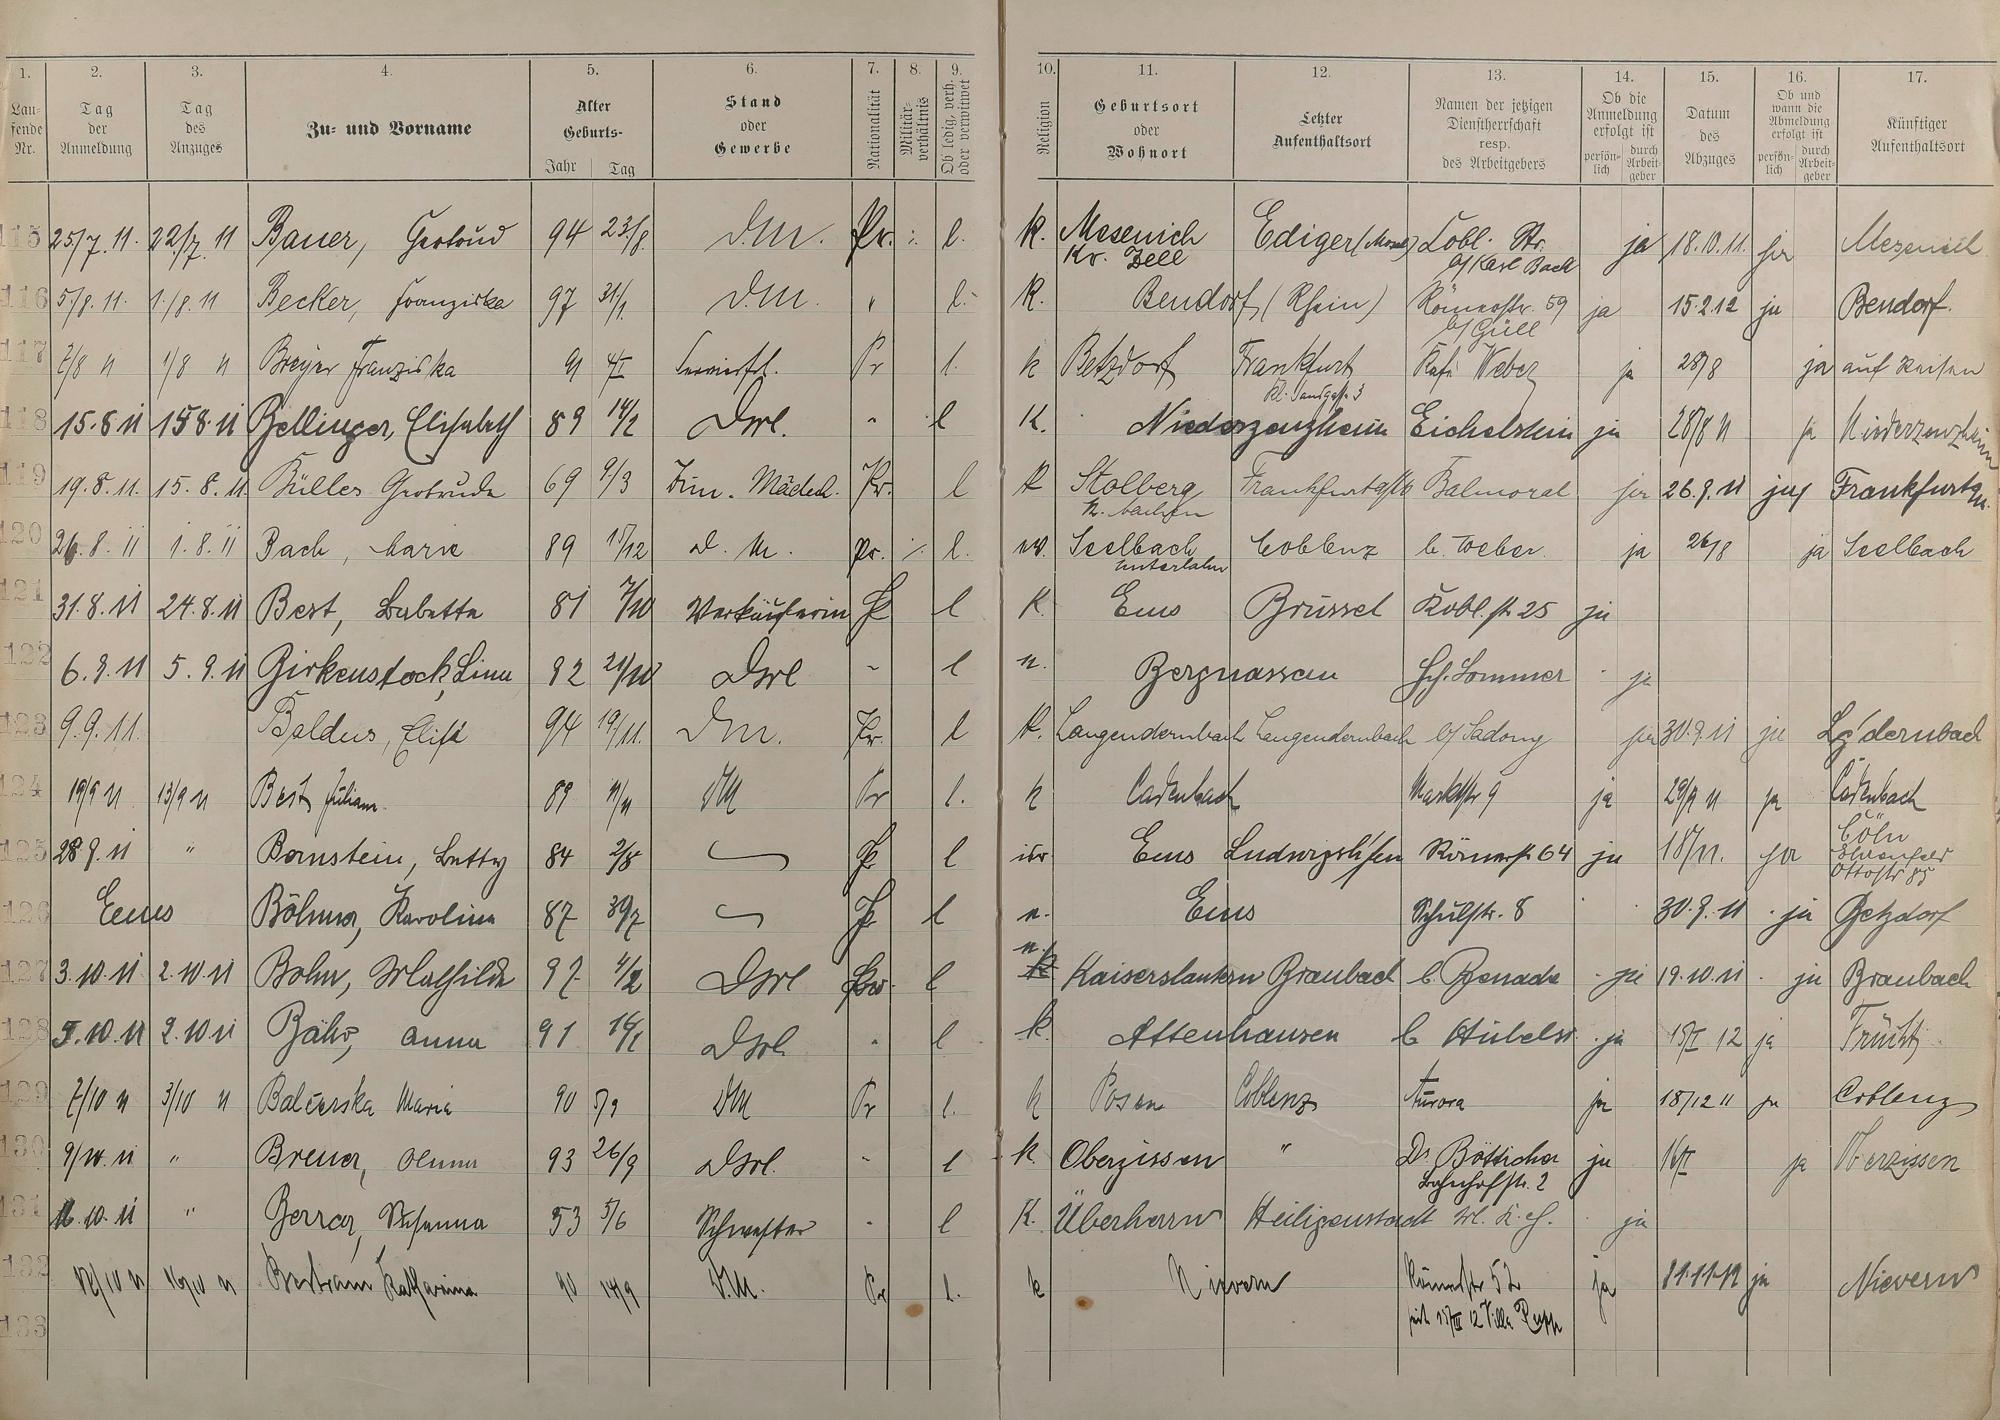 1. 2. 3. 4. 5. 6. 7. 8. 9. 10. 11. 12. 13. 14. 15. 16. 17.
Laufende Nr.
Tag der Anmeldung
Tag des Anzuges
Zu- und Vorname
Alter Geburts- Jahr Tag
Stand oder Gewerbe
Nationalität
Militärverhältnis
Ob ledig, verh. oder verwitwet
Religion
Geburtsort oder Wohnort
Letzter Aufenthaltsort
Namen der jetzigen Dienstherrschaft resp. des Arbeitgebers
Ob die Anmeldung erfolgt ist persönlich durch Arbeitgeber
Datum des Abzuges
Ob und wann die Abmeldung erfolgt ist persönlich durch Arbeitgeber
Künftiger Aufenthaltsort
115 25/7. 11. 22/7. 11 Bauer, Gertrud 94 23./8 D.M. Pr. l. k. Mesenich Ediger (Mosel) Cobl. Str. ja 18.10.11. ja Mesenich
Kr. Zell b/ Karl Bach
116 5/8. 11. 1./8. 11 Becker, Franziska 97 31/1 D.M. " l. k. Bendorf (Rhein) Römerstr. 59 ja 15.2.12 ja Bendorf.
b/ Güll
117 7/8 11 1/8 11 Breyer Franziska 91 Pr l. k Betzdorf Frankfurt Kafe Weber ja 28/8 ja auf Reisen
118 15.8.11 15.8.11 Bellinger, Elisabeth 89 14/2 Dm. " l K. Niederzeuzheim Eichelstein ja 28/8 11 ja Niederzeuzheim
119 19.8.11. 15.8.11. Büller Gertrude 69 9/3 Zim. Mädch. Pr. l k Stolberg Frankfurt a/M Balmoral ja 26.9.11 ja Frankfurt a/M.
b. Aachen
120 26.8.11 1.8.11 Bach, Marie 89 15/12 D.M. Pr. ./. l. ev. Seelbach Coblenz b. Weber. ja 26/8 ja Seelbach
Unterlahn
121 31.8.11 24.8.11 Best, Babette 81 7/10 Verkäuferin Pr l K. Ems Brüssel Kobl. str 25 ja
122 6.9.11 5.9.11 Birkenstock, Lina 92 21/10 Dm " l n. Bergnassau Sommer ja
123 9.9.11. Baldus, Elise 94 19/11. Dm. Pr. l k. Langendernbach Langendernbach b/ Sadony ja 30.9.11 ja Lg'dernbach
124 19/9 11 13/9 11 Best Julian. 89 11/11 DM Pr l. k Cadenbach Marktstr 9 ja 29/9 11 ja Cadenbach
125 28.9.11 " Bernstein, Betty 84 2/8 Pr l isr Ems Ludwigshafen Römerstr 64 ja 18/11. ja Cöln
Ehrenfeld
Ottostr 85
126 Ems Böhmer, Karoline 87 30/7 Pr l n. Ems Schulstr. 8 30.9.11 ja Betzdorf
127 3.10.11 2.10.11 Bohn, Mathilde 97 4/2 Dm l n. Kaiserslautern Braubach b. Benade ja 19.10.11 ja Braubach
128 5.10.11 2.10.11 Bähr, Anna 91 16/1 Dm " l k. Attenhausen b Hübelst. ja 12 ja Frücht
129 7/10 11 3/10 11 Balcerska Maria 90 5/9 DM Pr l. k Posen Coblenz Aurora ja 18/12 11 ja Coblenz
130 9/10.11 " Breuer, Anna 93 26/9 Dm. " l k. Oberzissen " Dr. Bötticher ja ja Oberzissen
Bahnhofstr. 2
131 16.10.11 " Berrar, Susanna 53 5/6 Schwester " l K. Überherrn Heiligenstadt ja
132 18/10 11 16/10 11 Bertram Katharina 90 14/9 D.M. Pr l. k Nievern Römerstr 52 ja ja Nievern
seit 12 Villa Rupp
133